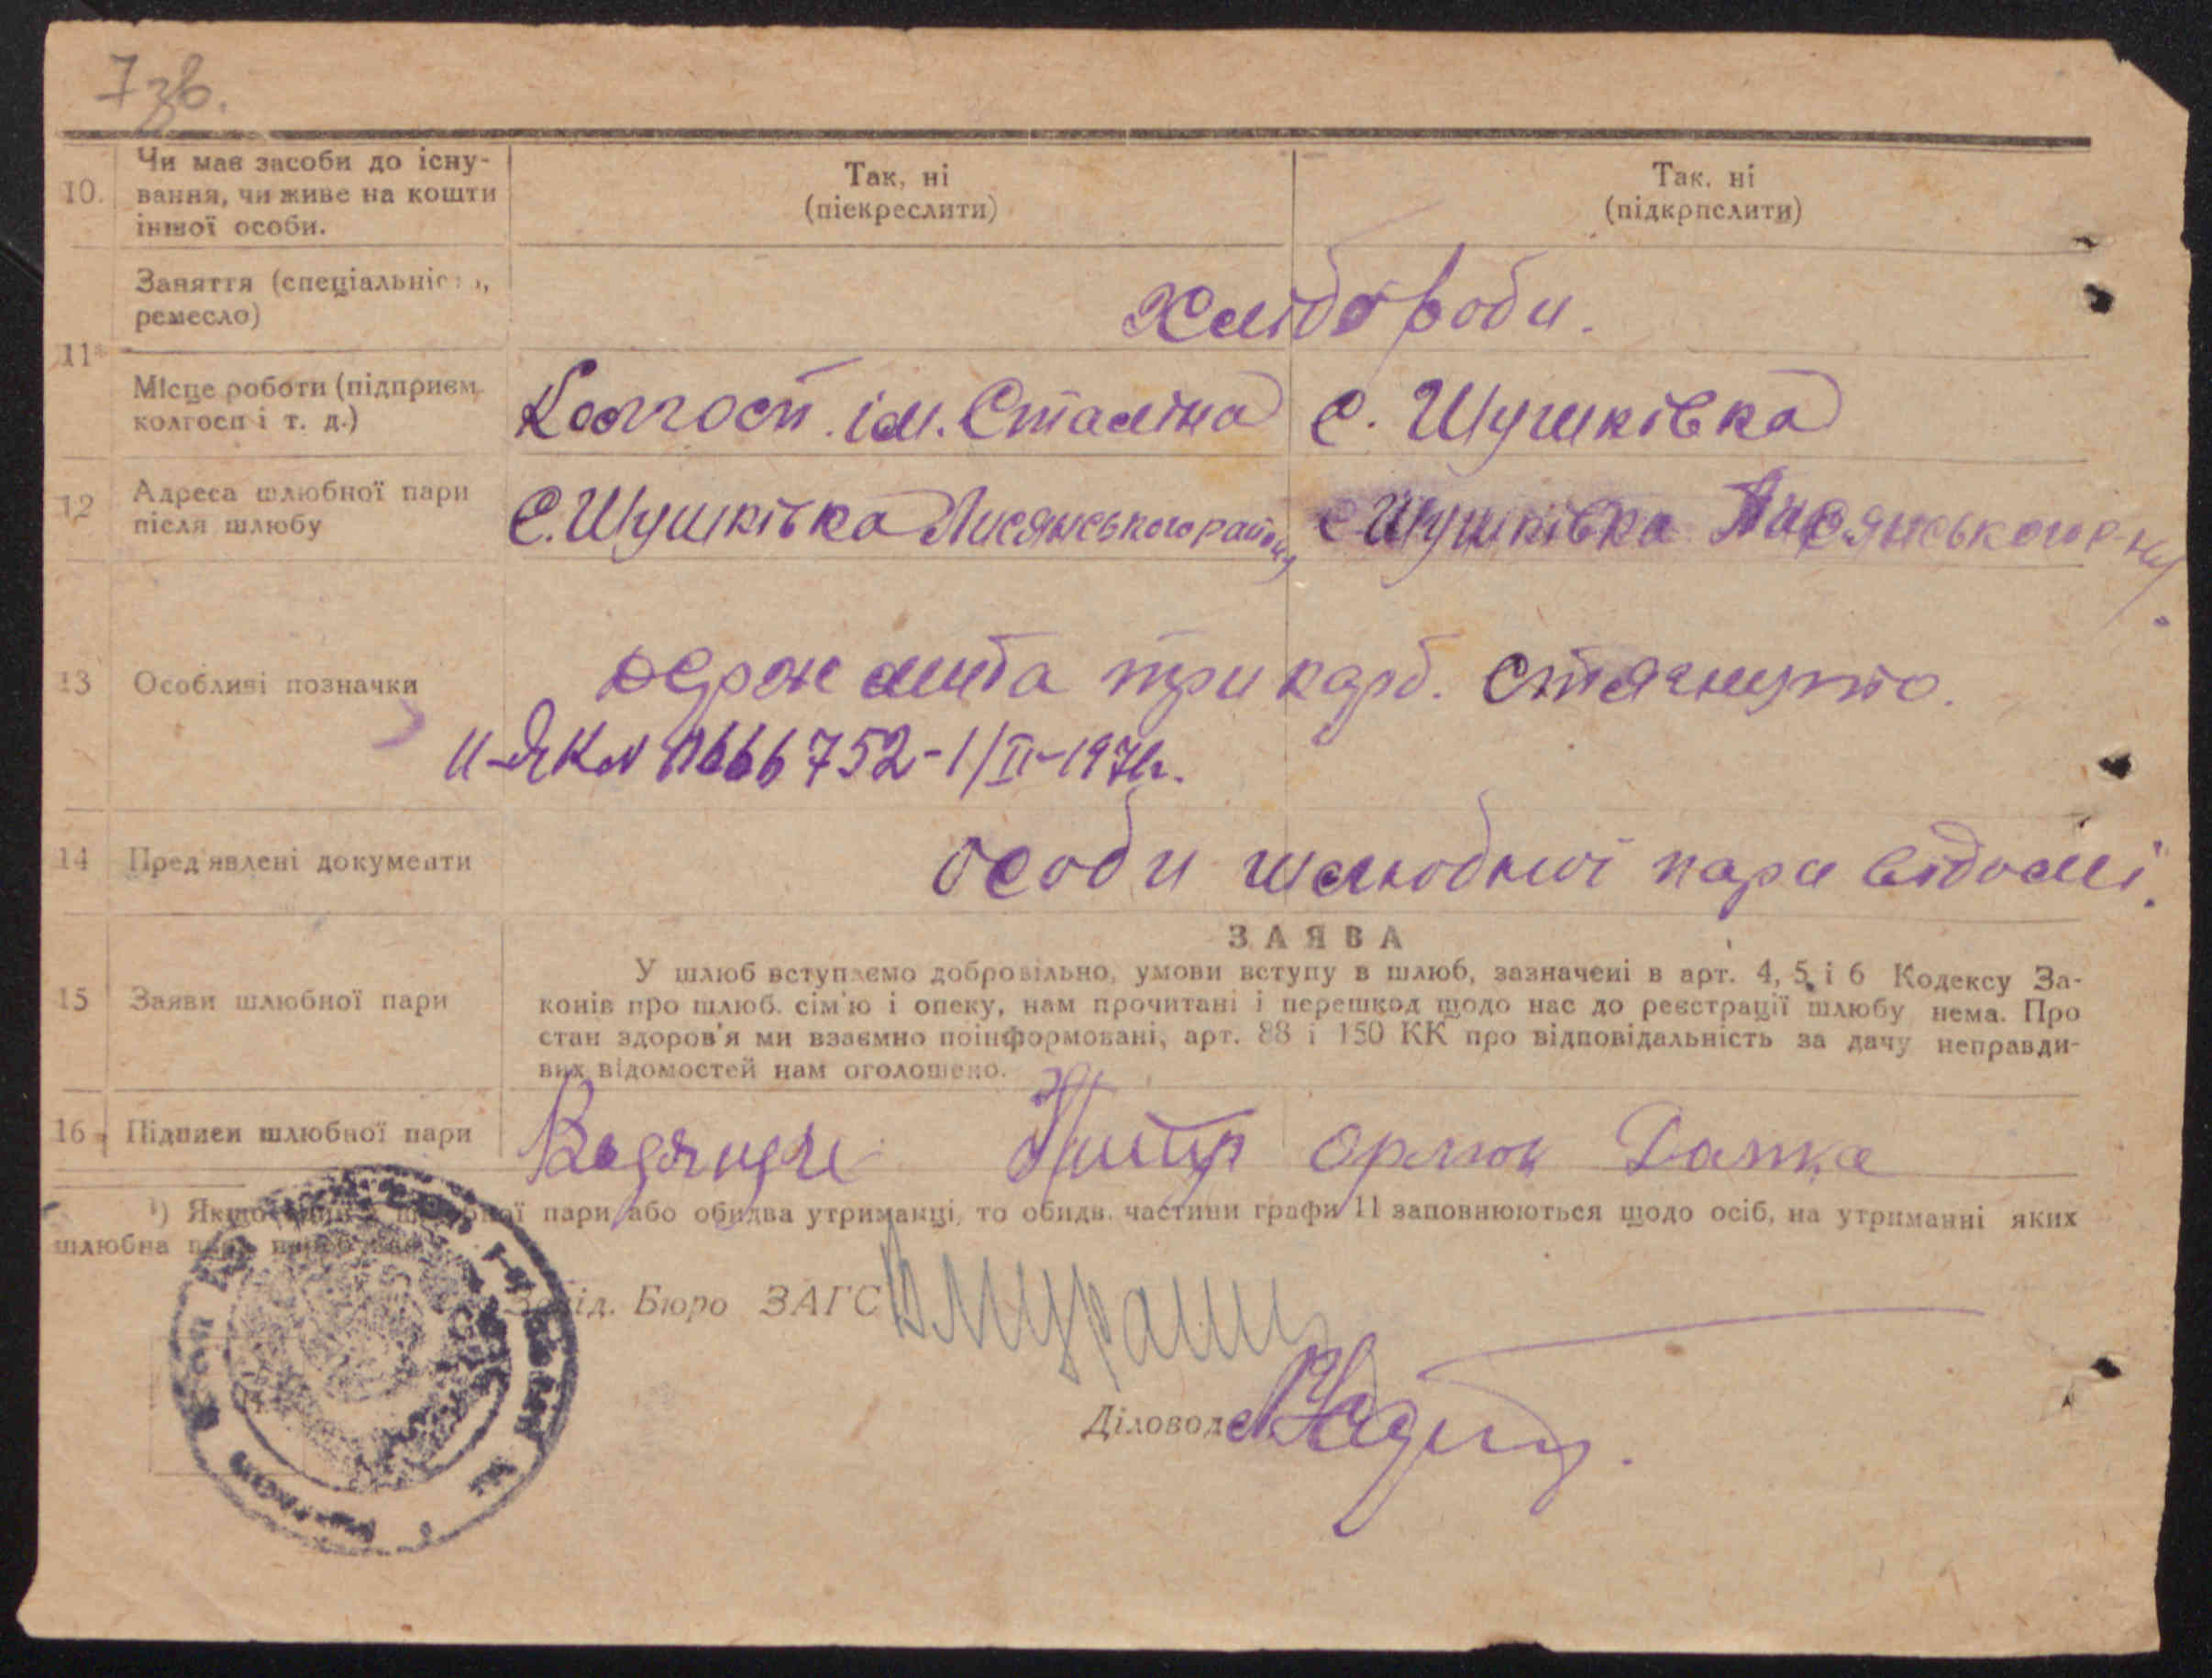 7 зв.
10. Чи має засоби до існу-
вання, чи живе на кошти
іншої особи.
Так, ні
(піекреслити)
Так. ні
(підкрпслити)
11
Заняття (спеціальність,
ремесло)
Хлібороби.
Місце роботи (підприєм.
колгосп і т. д.)
Колгосп ім. Сталіна
с. Шушківка
12 Адреса шлюбної пари
після шлюбу
С. Шушківка Лисянського району
с. Шушківка Лисянського р-ну.
13 Особливі позначки
держ мита три карб. стягнуто.
ІІ-ЯК № 0666752-1/IV-1971г.
14 Пред'явлені документи
особи шлюбної пари відомі.
ЗАЯВА
15 Заяви шлюбної пари
У шлюб вступаємо добровільно, умови вступу в шлюб, зазначені в арт. 4, 5 і 6 Кодексу За-
конів про шлюб. сім'ю і опеку, нам прочитані і перешкод щодо нас до реєстрації шлюбу нема. Про
стан здоров'я ми взаємно поінформовані, арт. 88 і 150 КК про відповідальність за дачу неправди-
вих відомостей нам оголошено.
16 Підписи шлюбної пари
Орлюк
¹) Якщо пари або обидва утриманці, то обидв. частини графи 11 заповнюються щодо осіб, на утриманні яких
шлюбна
Завід. Бюро ЗАГС
Діловод